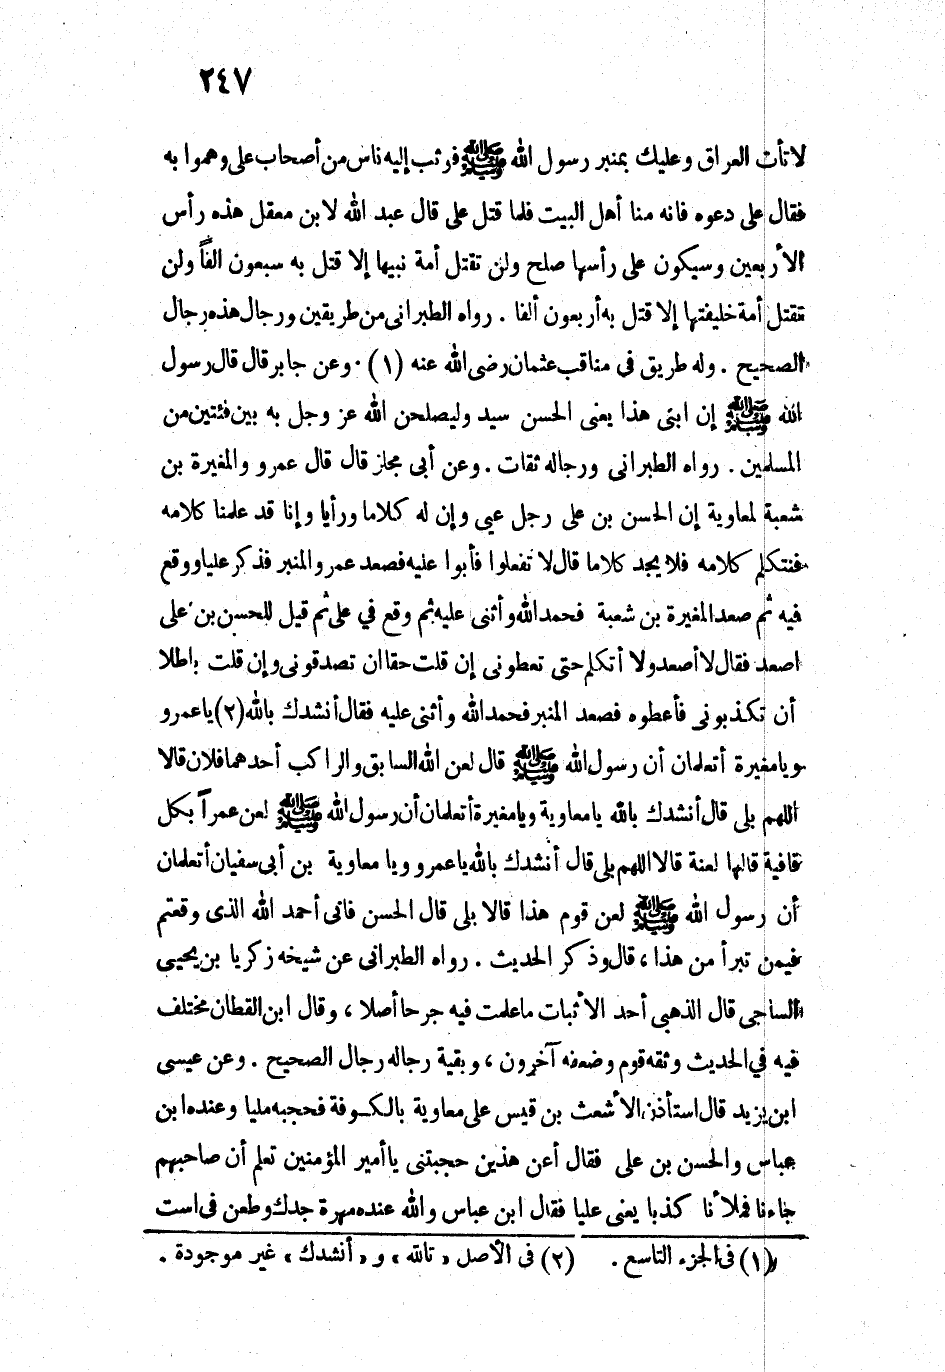 ٢٤٧
لا تأت العراق وعليك بمنبر رسول الله ﷺ فرثب إليه ناس من أصحاب على وهموا به
فقال على دعوه فانه منا أهل البيت فلما قتل على قال عبد الله لابن معقل هذه رأس
الأربعين وسيكون على رأسها صلح ولن تقتل أمة نبيها إلا قتل به سبعون الفاً ولن
تقتل أمة خليفتها إلا قتل به أربعون ألفا . رواه الطبرانى من طريقين ورجال هذه رجال
الصحيح . وله طريق في مناقب عثمان رضى الله عنه (١) . وعن جابر قال قال رسول
الله ﷺ إن ابنى هذا يعنى الحسن سيد وليصلحن الله عز وجل به بين فئتين من
المسلمين . رواه الطبرانى ورجاله ثقات . وعن أبى مجلز قال قال عمرو والمغيرة بن
شعبة لمعاوية إن الحسن بن على رجل عيي وإن له كلاما ورأيا وإنا قد علمنا كلامه
فنتكلم كلامه فلا يجد كلاما قال لا تفعلوا فأبوا عليه فصعد عمرو المنبر فذكر عليا ووقع
فيه ثم صعد المغيرة بن شعبة فحمد الله وأثنى عليه ثم وقع في على ثم قيل للحسن بن على
اصعد فقال لا أصعد ولا أتكلم حتى تعطونى إن قلت حقا ان تصدقونى وإن قلت باطلا
أن تكذبونى فأعطوه فصعد المنبر فحمد الله وأثنى عليه فقال أنشدك بالله (٢) يا عمرو
ويا مغيرة أتعلمان أن رسول الله ﷺ قال لعن الله السابق والراكب أحدهما فلان قالا
اللهم بلى قال أنشدك بالله يا معاوية ويا مغيرة أتعلمان أن رسول الله ﷺ لعن عمراً بكل
قافية قالها لعنة قالا اللهم بلى قال أنشدك بالله يا عمرو ويا معاوية بن أبى سفيان أتعلمان
أن رسول الله ﷺ لعن قوم هذا قالا بلى قال الحسن فانى أحمد الله الذى وقعتم
فيمن تبرأ من هذا ، قال وذكر الحديث . رواه الطبرانى عن شيخه زكريا بن يحيى
الساجى قال الذهبي أحد الأثبات ما علمت فيه جرحا أصلا ، وقال ابن القطان مختلف
فيه في الحديث وثقه قوم وضعفه آخرون ، وبقية رجاله رجال الصحيح . وعن عيسى
ابن يزيد قال استأذن الأشعث بن قيس على معاوية بالكوفة فحجبه مليا وعنده ابن
عباس والحسن بن على فقال أعن هذين حجبتنى يا أمير المؤمنين تعلم أن صاحبهم
جاءنا فملأنا كذبا يعنى عليا فقال ابن عباس والله عنده مهرة جدك وطعن فى است
(١) فى الجزء التاسع . (٢) فى الأصل « تالله » و « أنشدك » غير موجودة .